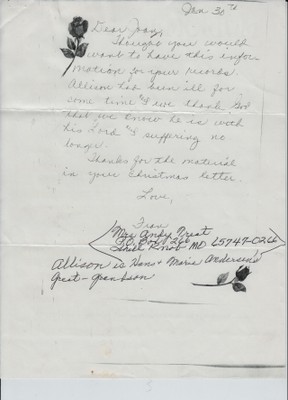 Jan 30th
Dear Joan,
Thought you would
want to have this infor-
mation for your records.
Allison had been ill for
some time & we thank God
that we know he is with
his Lord & suffering no
longer.
Thanks for the material
in your Christmas letter.
Love,
Fran
Mrs Andy
Shell Knob MO 65747-0266
Allison is Hans + Marie Andersen's
great-grandson